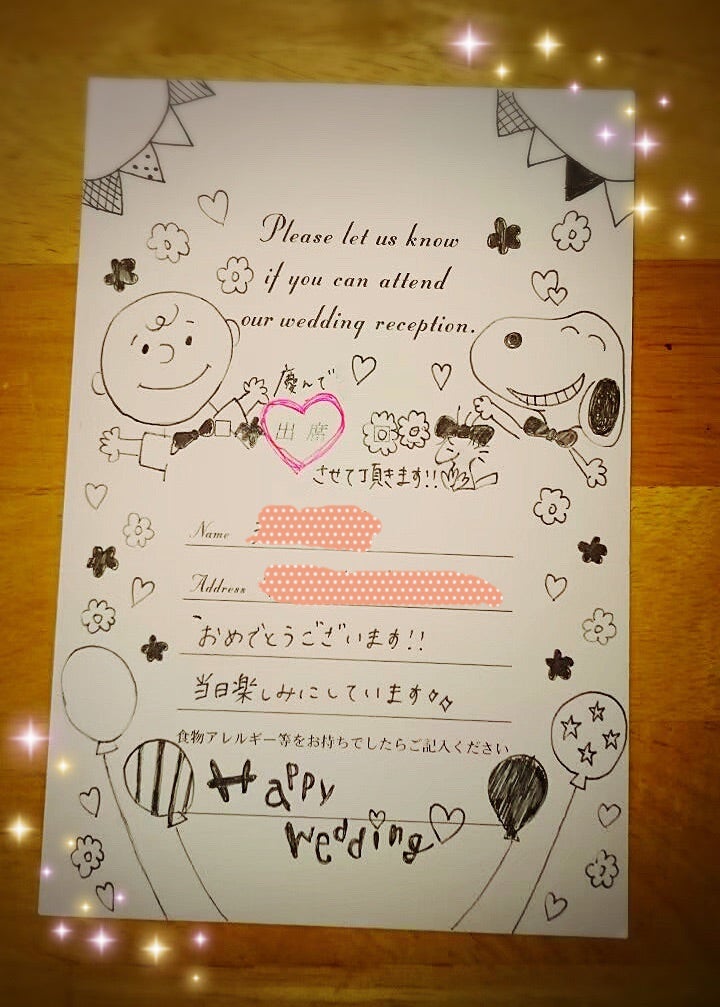 Please let us know
if you can attend
our wedding reception.
慶んで
出席
させて頂きます!!
Name
Address
おめでとうございます!!
当日楽しみにしています
食物アレルギー等をお持ちでしたらご記入ください
Happy
wedding